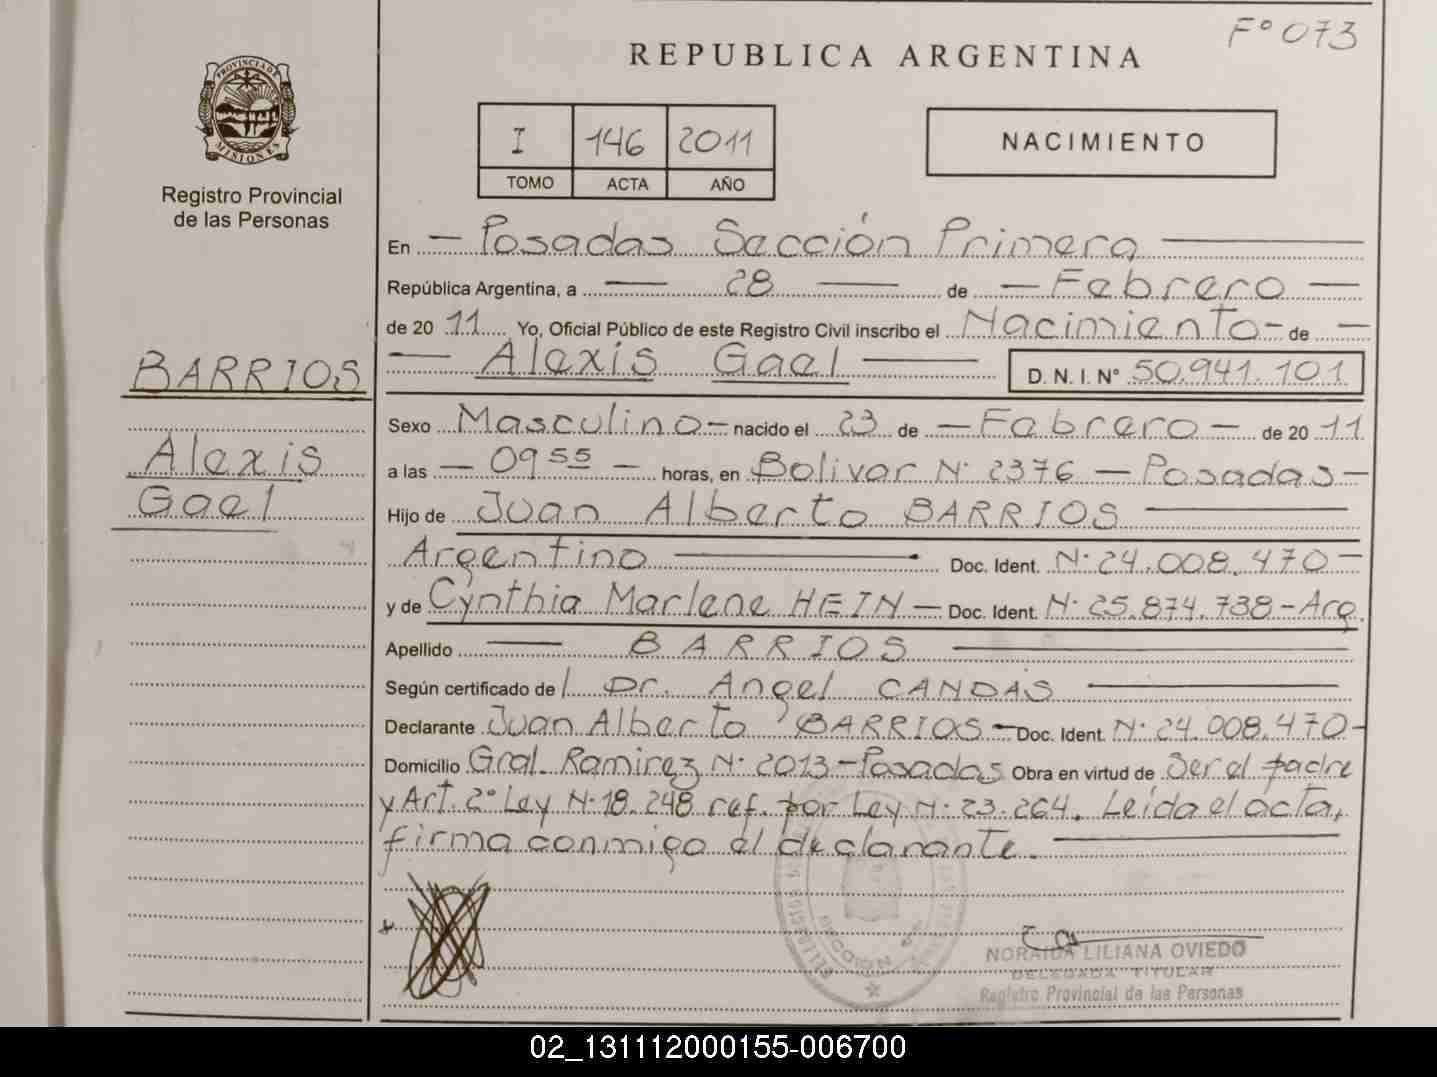 Fº 073
REPUBLICA ARGENTINA
PROVINCIA DE
MISIONES
Registro Provincial
de las Personas
I 146 2011
TOMO ACTA AÑO
NACIMIENTO
En — Posadas Sección Primera —
República Argentina, a — 28 — de — Febrero —
de 20 11 Yo, Oficial Público de este Registro Civil inscribo el Nacimiento - de —
— Alexis Gael — D. N. I. N° 50.941.101
BARRIOS
Alexis
Gael
Sexo Masculino - nacido el 23 de — Febrero — de 20 11
a las — 09 55 — horas, en Bolivar N· 2376 — Posadas —
Hijo de Juan Alberto BARRIOS —
Argentino — Doc. Ident. N· 24.008.470 —
y de Cynthia Marlene HEIN — Doc. Ident. N· 25.874.738 - Arg.
Apellido — BARRIOS —
Según certificado de l Dr. Angel CANDAS —
Declarante Juan Alberto BARRIOS — Doc. Ident. N· 24.008.470 -
Domicilio Gral. Ramirez N· 2013 - Posadas Obra en virtud de Ser el padre
y Art. 2° Ley N· 18.248 ref. por Ley N· 23.264. Leída el acta,
firma conmigo el declarante. —
SECCION
NORAIDA LILIANA OVIEDO
DELEGADA TITULAR
Registro Provincial de las Personas
02_131112000155-006700